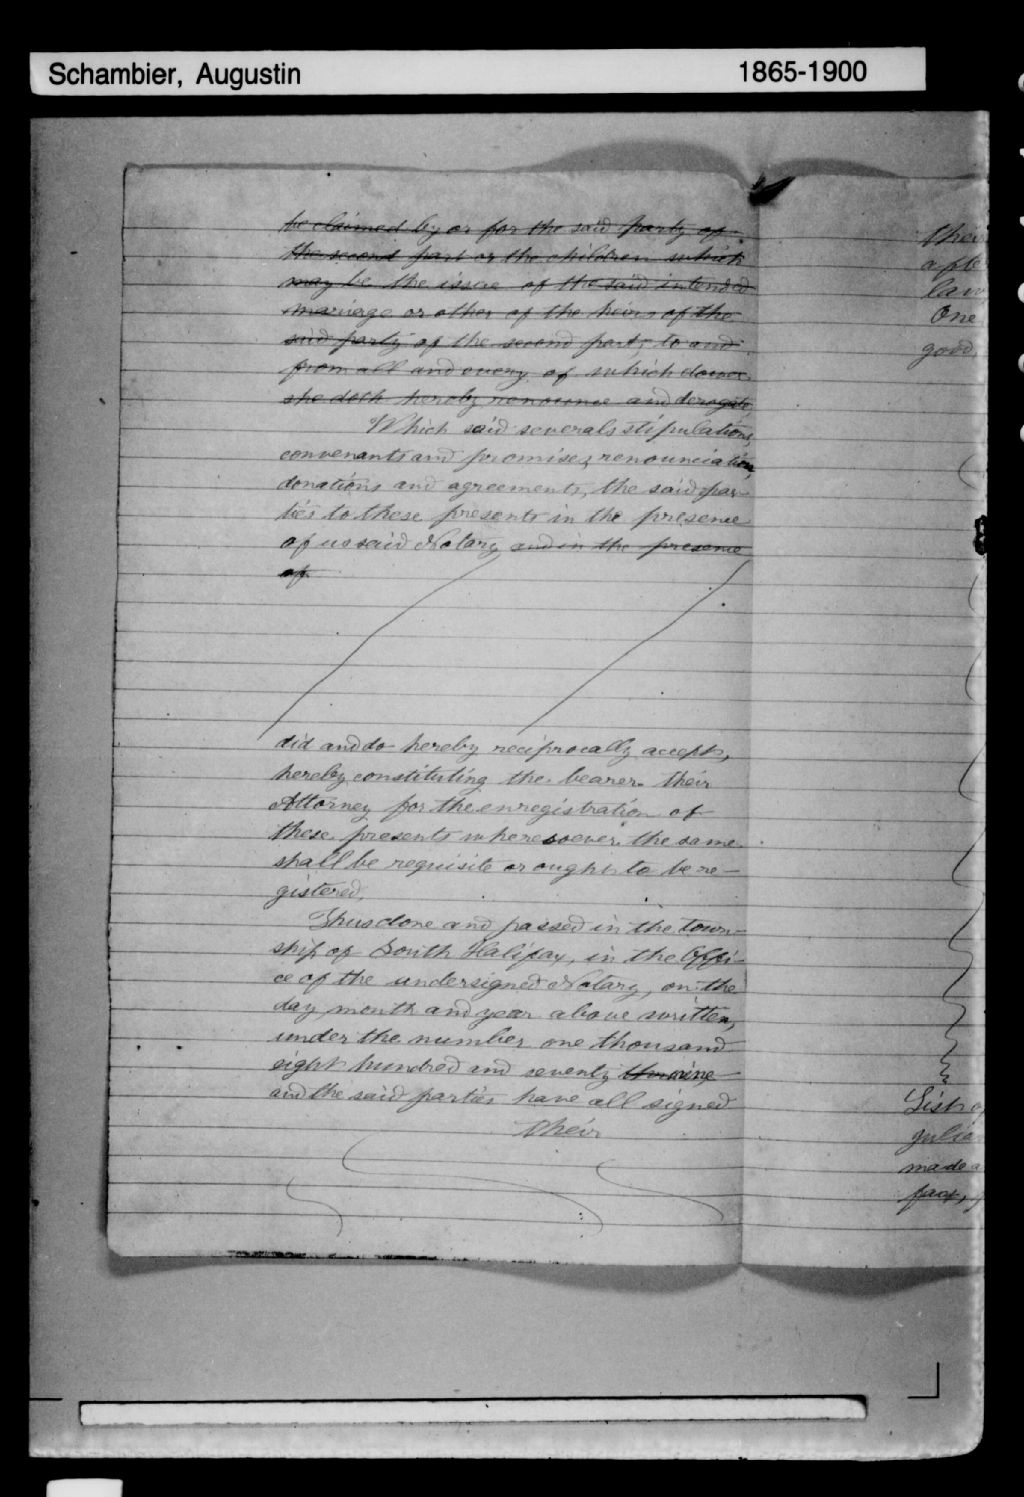 Schambier, Augustin 1865-1900
be claimed by or for the said party of
the second part or the children which
may be the issue of the said intended
marriage or other of the heirs of the
said party of the second part, to and
from all and every of which dower
she doth hereby renounce and derogate
Which said severals stipulations,
convenants and promises, renounciation,
donations and agreements, the said par-
ties to these presents in the presence
of us said Notary and in the presence
of
did and do hereby reciprocally accept,
hereby constituting the bearer their
Attorney for the enregistration of
these presents wheresoever the same
shall be requisite or ought to be re-
gistered.
Thus done and passed in the town-
ship of South Halifax, in the Offi-
ce of the undersigned Notary, on the
day month and year above written,
under the number one thousand
eight hundred and seventy nine
and the said parties have all signed
their
their
afte
law
One
good
List o
julian
made a
fact,